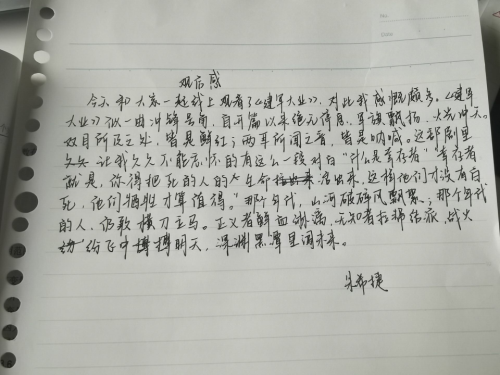 观后感
今天和大家一起线上观看了《建军大业》,对此我感慨颇多。《建军
大业》似一曲冲锋号角,自开篇以来绝无停息,军旗飘扬,火光冲天。
双目所及之处,皆是鲜红;两耳所闻之音,皆是呐喊。这部剧里
让我久久不能忘怀的有这么一段对白“什么是幸存者”“幸存者
就是,你得把死的人的生命活出来,这样他们才没有白
死,他们牺牲才算值得。”那个年代,山河破碎风飘絮;那个年代
的人,仍敢横刀立马。正义者鲜血淋漓,无知者拉帮结派,战火
纷飞中搏明天,深渊黑潭里闯未来。
朱希捷